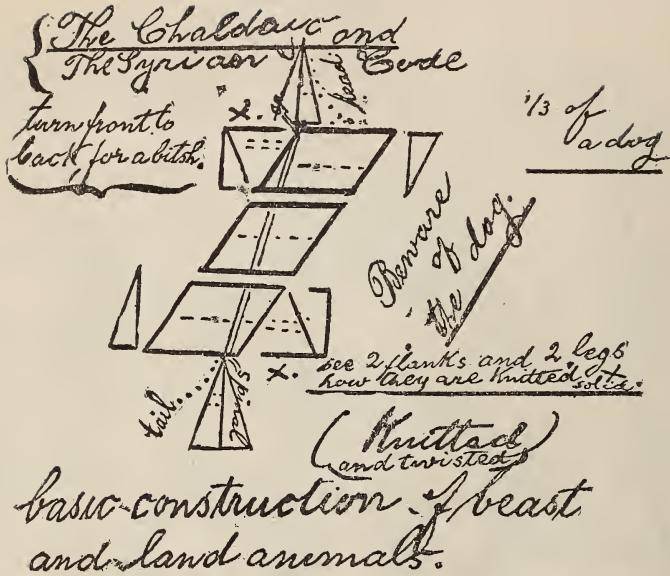 The Chaldaic and
The Syrian Code
head
turn front to
back, for a bitch.
x.
1/3 of
a dog
Beware
of
the dog.
see 2 flanks and 2 legs
how they are Knitted
x.
tail
spiral
(Knitted
and twisted)
basic construction of beast
and land anemals.